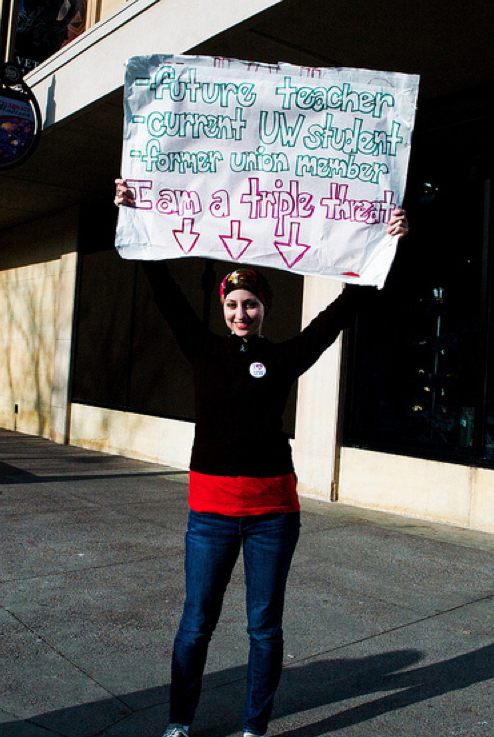 -future teacher
-current UW student
-former union member
I am a triple threat